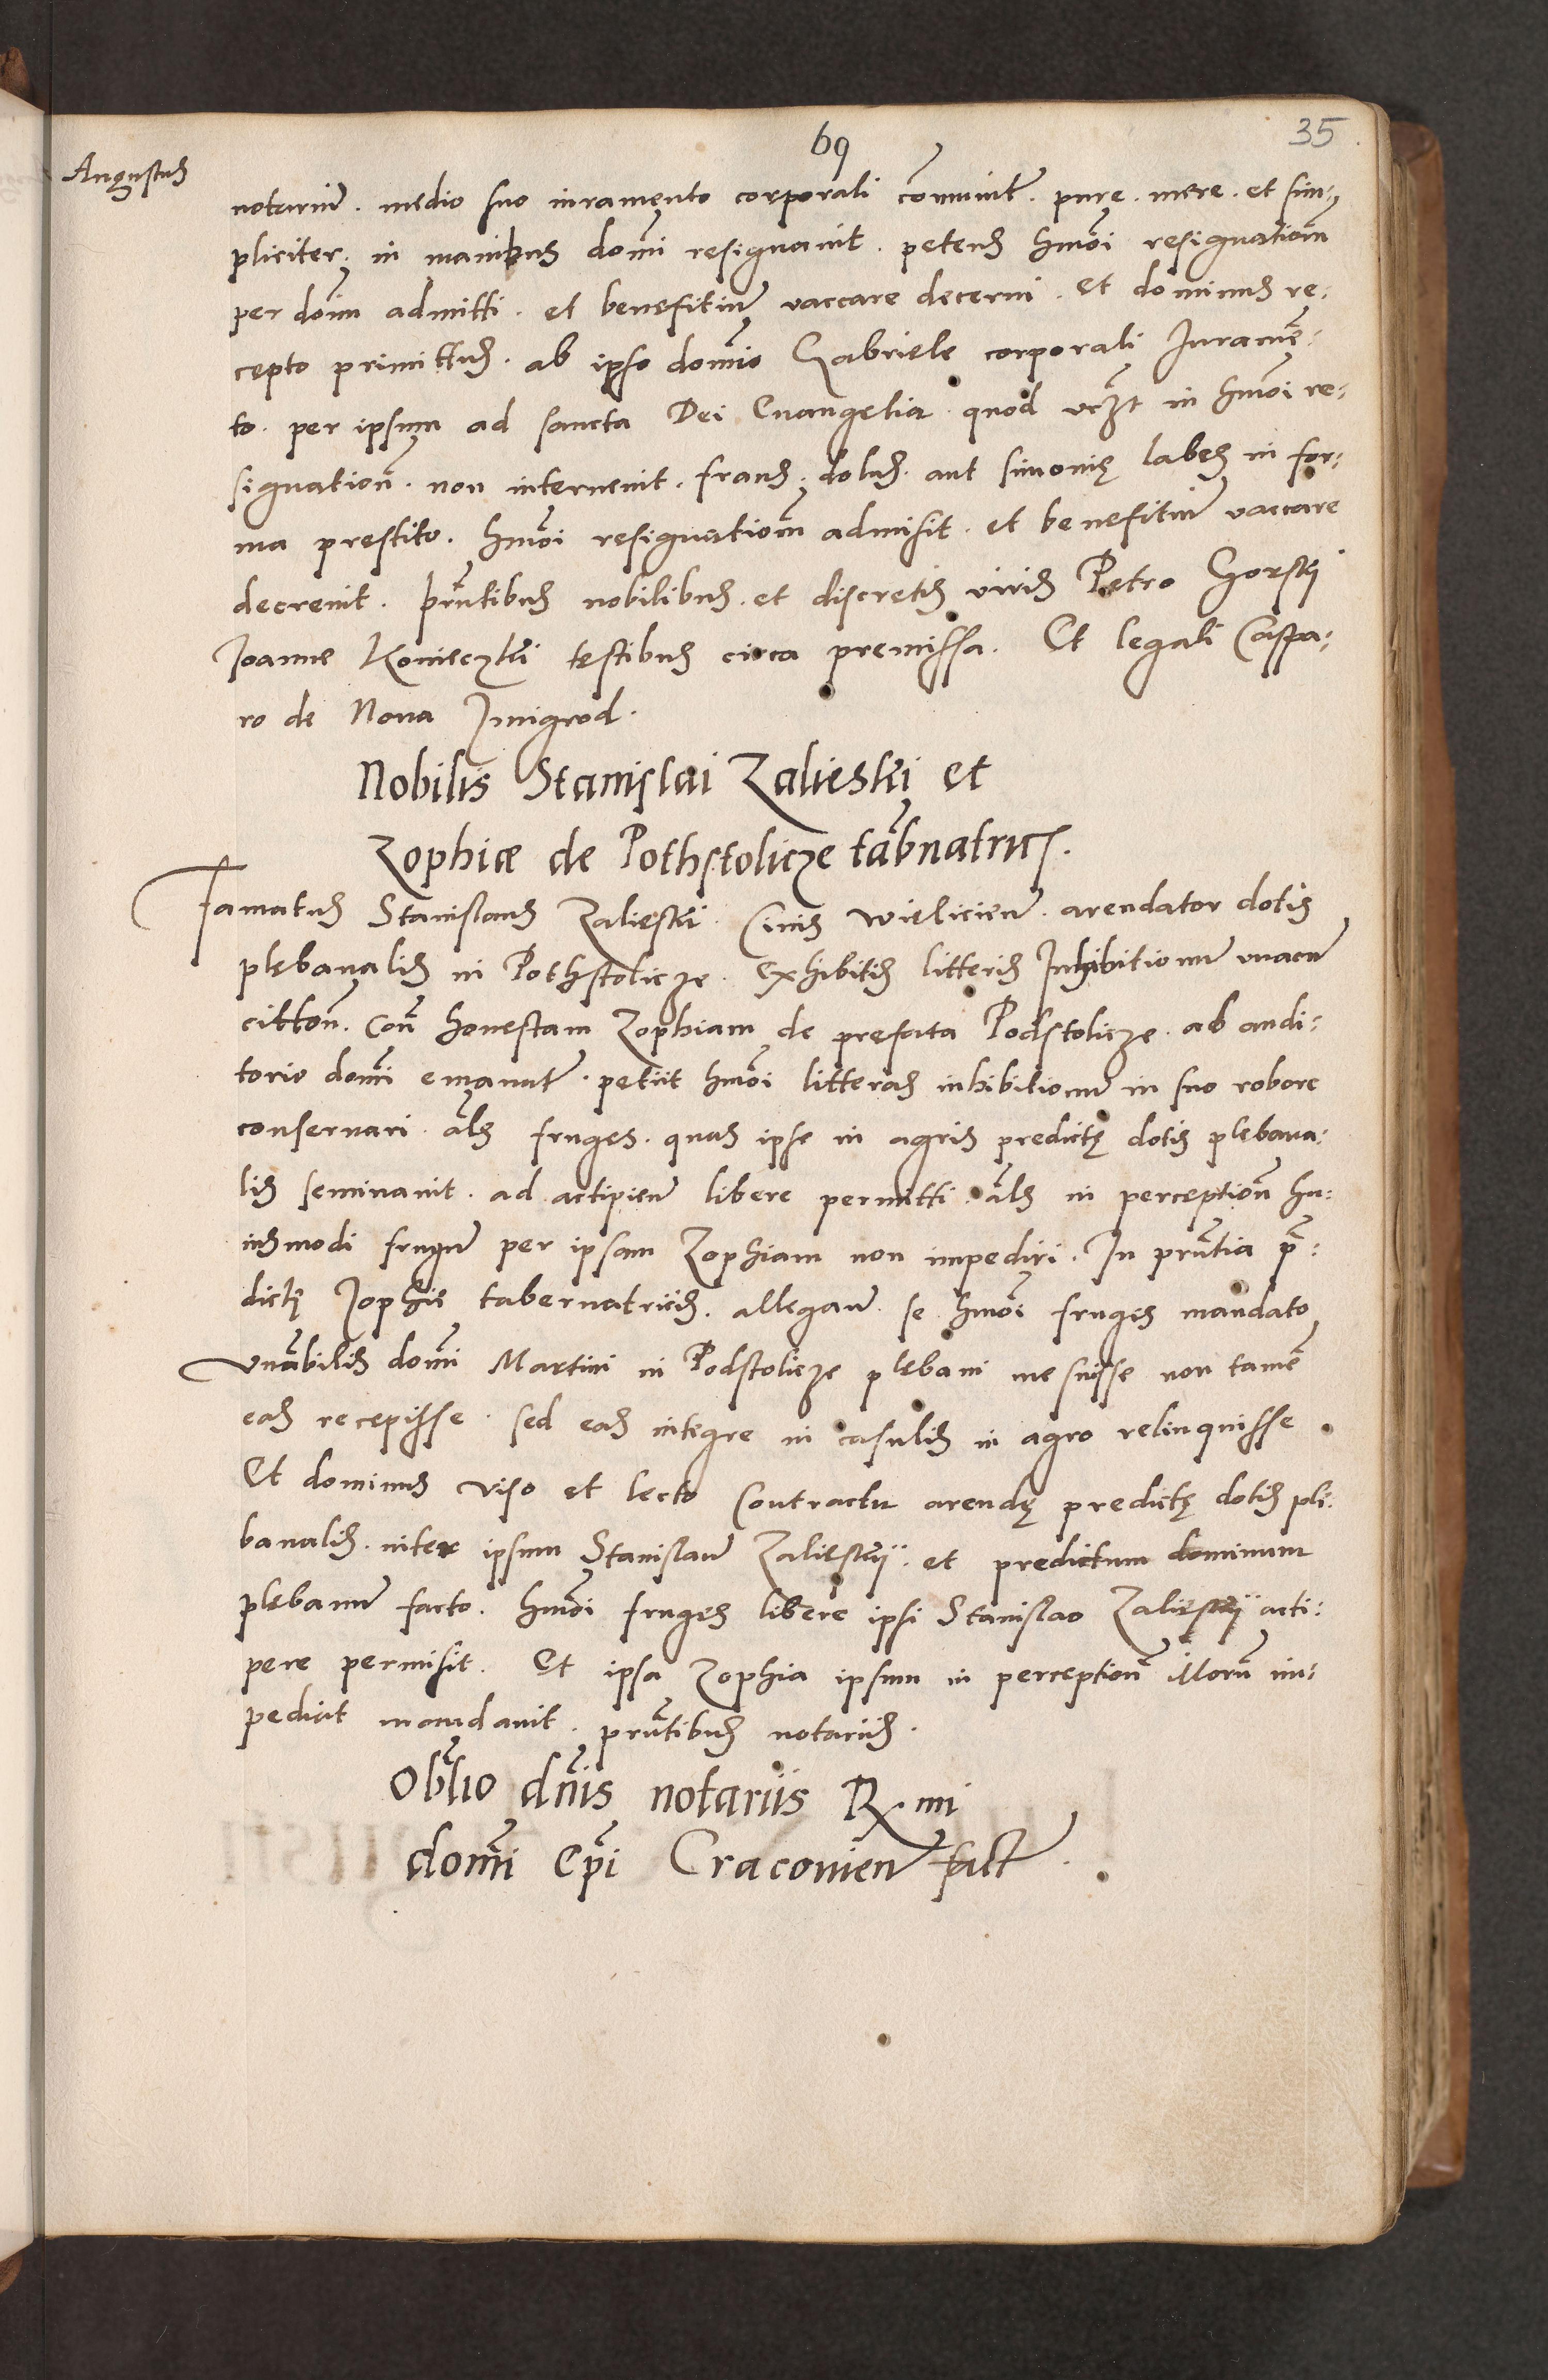 69
35
Augustus
notarium. medio suo iuramento corporali communit. pure. mere. et sim-
pliciter. in manibus domi resignauit. petens hmoi resignationem
per domi admitti. et benefitium vaccare decerni. et dominus re-
cepto primittus. ab ipso domio Gabriele corporali Iuramē-
to. per ipsum ad sancta Dei Euangelia. quod in hmoi re-
signation. non interuenit. fraus. dolus. aut simonię labes in for-
ma prestito. hmoi resignationem admisit. et benefitium vaccare
decreuit. pntibus nobilibus. et discretis viris Petro Gorski
Ioanne Konieczki testibus circa premissa. Et legali Caspa-
ro de Noua Zmigrod.
Nobilis Stanislai Zalieski et
Zophiæ de Pothstolicze tabnatricis.
Famatus Stanislaus Zalieski. Ciuis Wielicien. arendator dotis
plebanalis in Pothstolicze. exhibitis litteris Inhibitionum vnacum
citton. con honestam Zophiam de prefata Podstolicze. ab audi-
torio domi emanatis. petiit hmoi litteras inhibitionum in suo robore
conseruari. als fruges. quas ipse in agris predictę dotis plebana-
lis seminauit. ad actipien libere permitti. als in perception hu-
iusmodi frugum per ipsam Zophiam non impediri. In pntia prę-
dictę Zophie tabernatricis. allegan. se hmoi fruges mandato
Vnabilis domi Martini in Podstolicze plebani messuisse non tamē
eas recepisse. sed eas integre in casulis in agro relinquisse.
Et dominus viso et lecto Contractu arendę predictę dotis ple-
banalis. inter ipsum Stanislaum Zalieskij. et predictum dominum
plebanum facto. hmoi fruges libere ipsi Stanislao Zalieskij acti-
pere permisit. Et ipsa Zophia ipsum in perception illorum im-
pediat mandauit. pntibus notariis.
Oblio dnis notariis R. mi
domi Epi Cracouien fact.